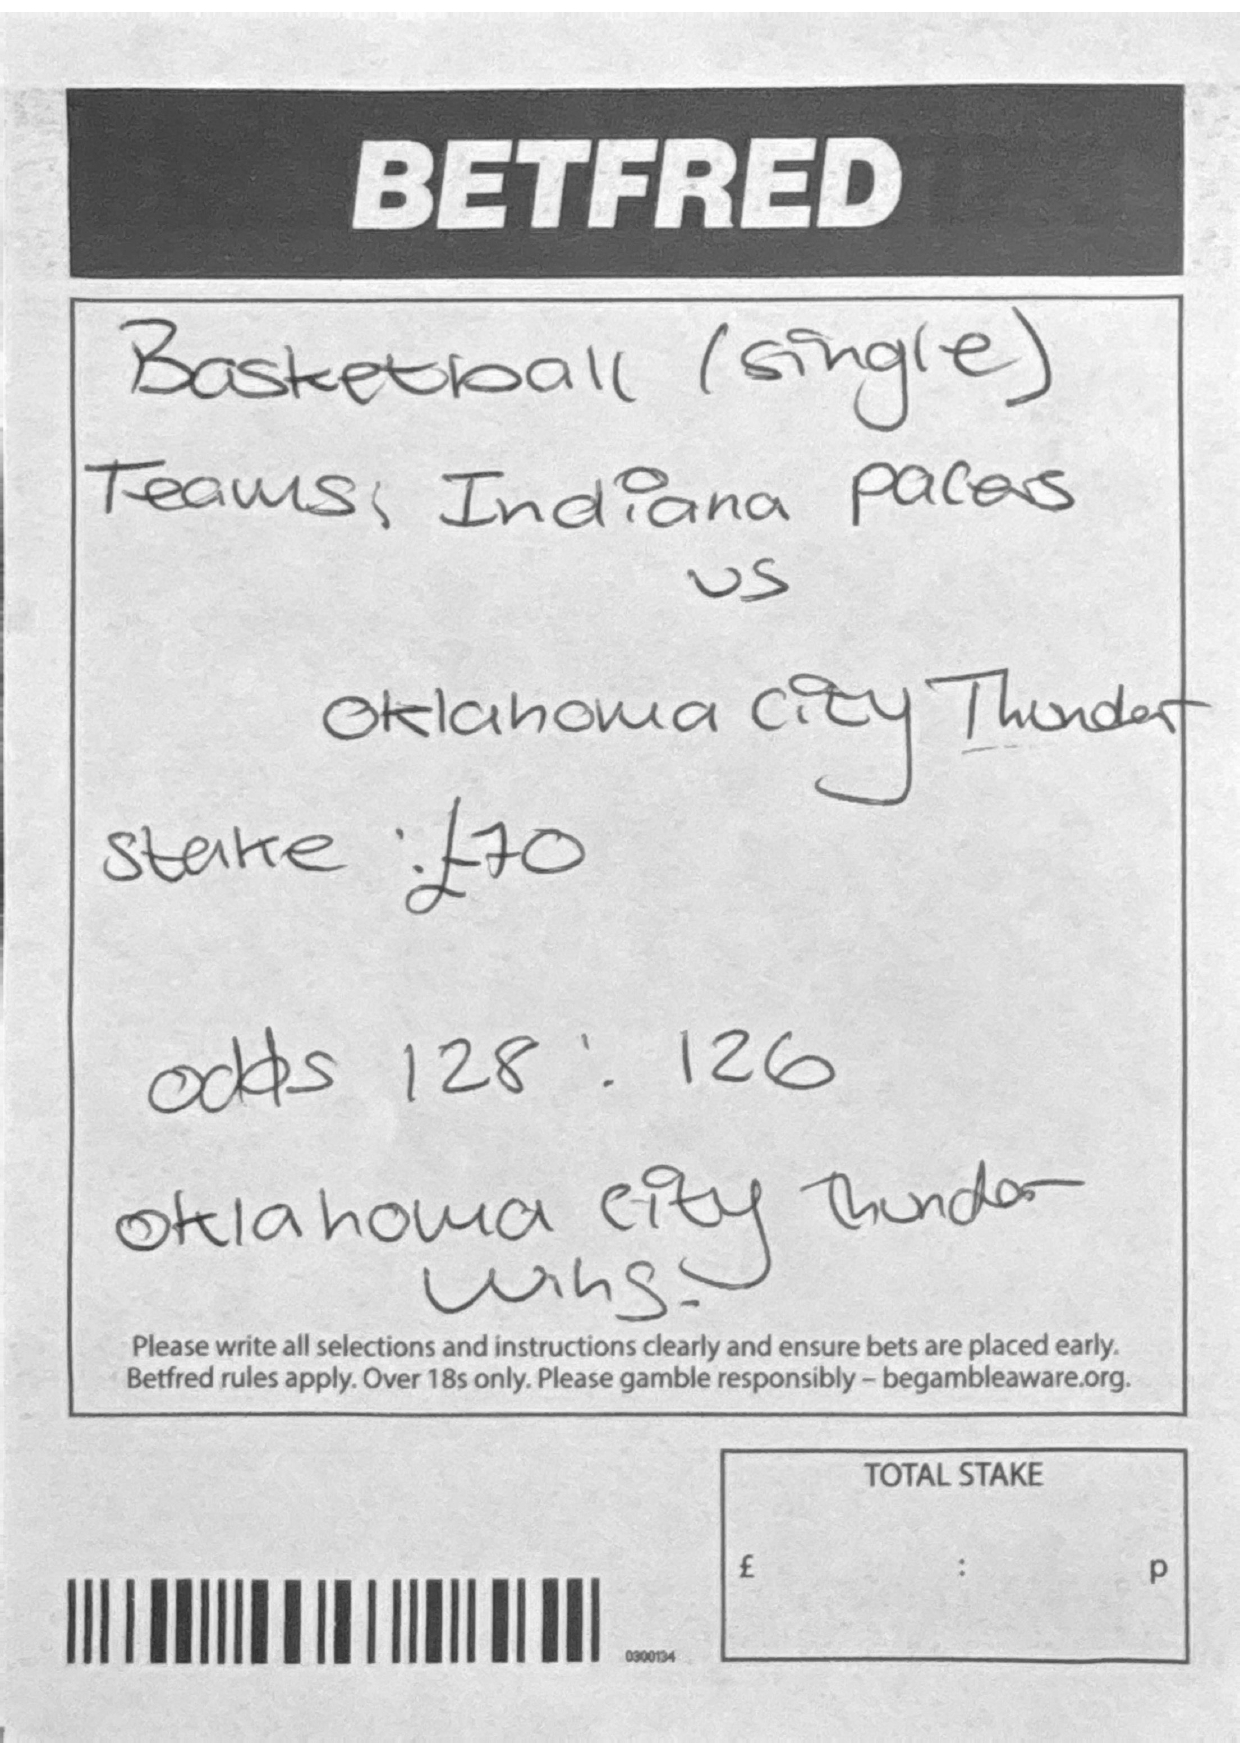 BETFRED
Basketball (single)
Teams: Indiana pacers
vs
Oklahoma city Thunder
stake : £70
odds 128 : 126
Oklahoma city thunder
wins.
Please write all selections and instructions clearly and ensure bets are placed early.
Betfred rules apply. Over 18s only. Please gamble responsibly – begambleaware.org.
TOTAL STAKE
£ : p
0300134